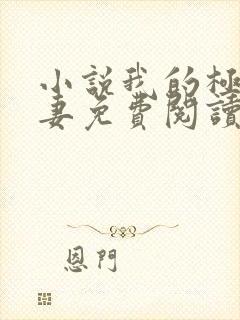 小說我的極
妻免費閱讀
恩門